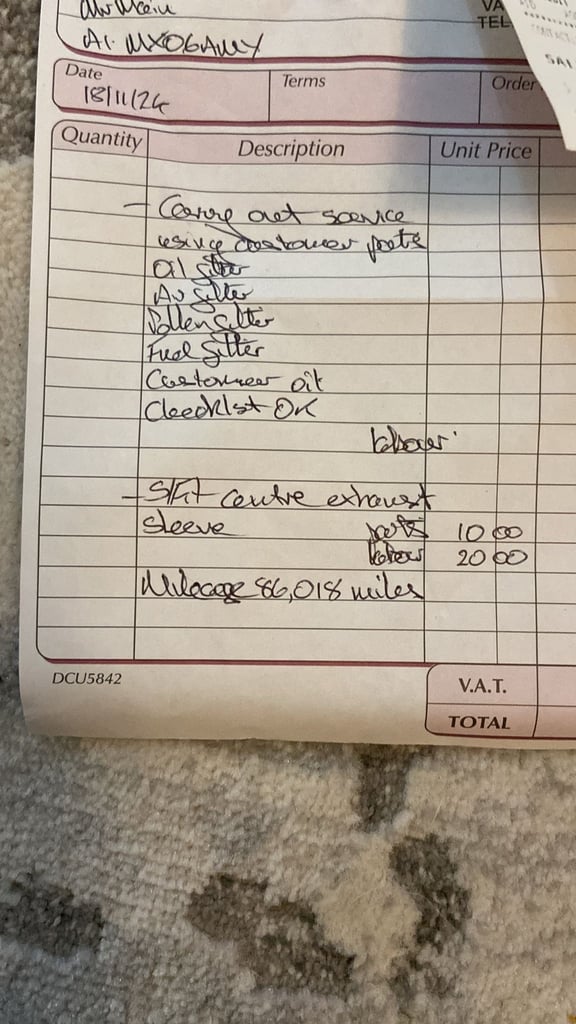 VA
TEL
A1. MX06AMY
SAL
Date
Terms
Order
18/11/24
Quantity
Description
Unit Price
- Carry out service
using customer parts
Oil filter
Air filter
Pollen filter
Fuel filter
Customer oil
Checklist OK
labour
- centre exhaust
sleeve parts 10 00
labour 20 00
Mileage 86,018 miles
DCU5842
V.A.T.
TOTAL